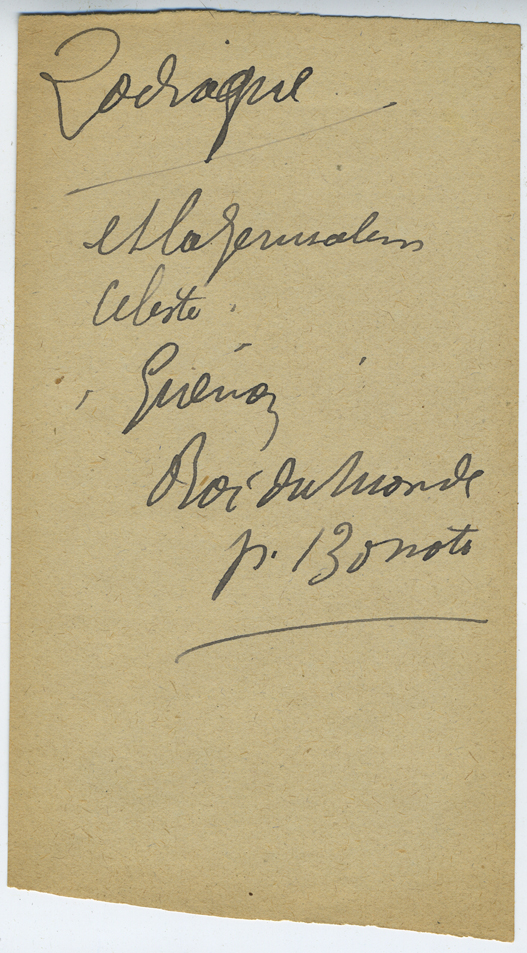 Zodiaque
et la Jerusalem
Celeste.
Guénon
Roi du Monde
p. 130 note